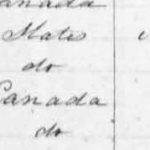 Canada
States
do
Canada
do